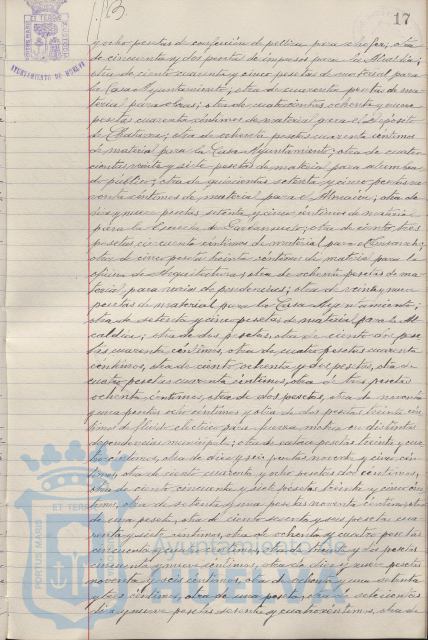 17
y ocho pesetas de confección de pellica para chofer; otra
de cincuenta y dos pesetas de impresos para la Alcaldia;
otra de ciento cuarenta y cinco pesetas de material para
la Casa Ayuntamiento; otra de cuarenta pesetas de ma-
terial para obras; otra de cuatrocientas ochenta y nueve
pesetas cuarenta céntimos de material para el Depósito
de Chatarra; otra de ochenta pesetas cuarenta céntimos
de material para la Casa Ayuntamiento; otra de cuatro-
cientas veinte y siete pesetas de material para alumbra-
do público; otra de quinientas setenta y cinco pesetas no-
venta céntimos de material para el Almacén; otra de
diez y nueve pesetas setenta y cinco céntimos de material
para la Escuela de
pesetas cincuenta céntimos de material para
otra de cinco pesetas veinte céntimos de material para la
oficina de Arquitectura; otra de ochenta pesetas de ma-
terial para varias dependencias; otra de veinte y nueve
pesetas de material para la Casa Ayuntamiento;
otra de setenta y cinco pesetas de material para la Al-
caldia; otra de dos pesetas, otra de ciento dos pese-
tas cuarenta céntimos, otra de cuatro pesetas cuarenta
céntimos, otra de ciento ochenta y dos pesetas, otra de
cuatro pesetas cuarenta céntimos, otra de tres pesetas
ochenta céntimos, otra de dos pesetas, otra de noventa
y una pesetas ocho céntimos y otra de dos pesetas veinte cén-
timos de fluido eléctrico para fuerza motriz en distintas
dependencias municipales; otra de catorce pesetas veinte y cua-
tro céntimos, otra de diez y seis pesetas noventa y cinco cén-
timos, otra de ciento cuarenta y ocho pesetas dos céntimos,
otra de ciento cincuenta y siete pesetas veinte y cinco cén-
timos, otra de setenta y una pesetas noventa céntimos, otra
de una peseta, otra de ciento sesenta y seis pesetas cua-
renta y siete céntimos, otra de ochenta y cuatro pesetas
cincuenta y cinco céntimos, otra de treinta y dos pesetas
cincuenta y nueve céntimos, otra de diez y nueve pesetas
noventa y seis céntimos, otra de ochenta y una setenta
y tres céntimos, otra de una peseta, otra de setecientas
diez y nueve pesetas sesenta y cuatro céntimos, otra de
AYUNTAMIENTO DE HUELVA
PORTUS MARIS ET TERRE
Ayuntamiento de
HUELVA